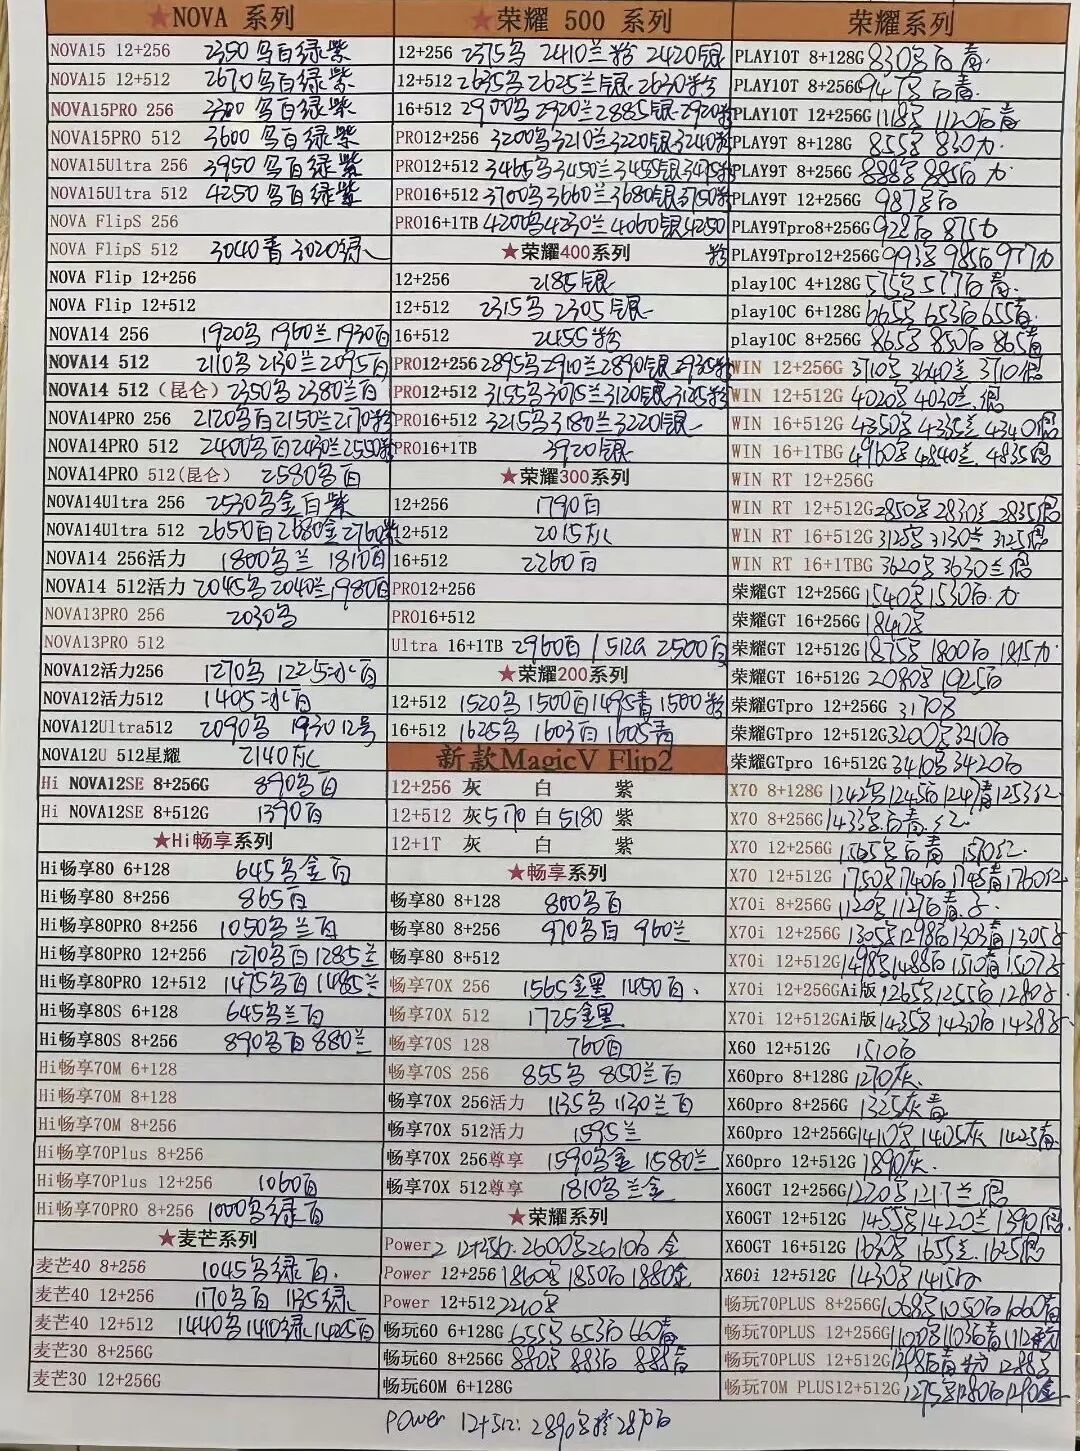 ★NOVA 系列
NOVA15 12+256 2350乌白绿紫
NOVA15 12+512 2670乌白绿紫
NOVA15PRO 256 乌白绿紫
NOVA15PRO 512 3600乌白绿紫
NOVA15Ultra 256 3950乌白绿紫
NOVA15Ultra 512 4250乌白绿紫
NOVA FlipS 256
NOVA FlipS 512 3040青 3020绿
NOVA Flip 12+256
NOVA Flip 12+512
NOVA14 256 1920乌 1960兰 1930白
NOVA14 512 2110乌 2130兰 2095白
NOVA14 512（昆仑） 2350乌 2380兰白
NOVA14PRO 256 2120乌白 2150兰 2170粉
NOVA14PRO 512 2400乌白 2430兰 2550粉
NOVA14PRO 512(昆仑） 2580乌白
NOVA14Ultra 256 2530乌金白紫
NOVA14Ultra 512 2650白 2680金 2760紫
NOVA14 256活力 1800乌兰 1810白
NOVA14 512活力 2045乌 2040兰 1980白
NOVA13PRO 256 2030乌
NOVA13PRO 512
NOVA12活力256 1270乌 1225冰白
NOVA12活力512 1405冰白
NOVA12Ultra512 2090乌 1930 12号
NOVA12U 512星耀 2140灰
Hi NOVA12SE 8+256G 890乌白
Hi NOVA12SE 8+512G 1390白
★Hi畅享系列
Hi畅享80 6+128 645乌金白
Hi畅享80 8+256 865白
Hi畅享80PRO 8+256 1050乌兰白
Hi畅享80PRO 12+256 1270乌白 1285兰
Hi畅享80PRO 12+512 1475乌白 1485兰
Hi畅享80S 6+128 645乌兰白
Hi畅享80S 8+256 890乌白 880兰
Hi畅享70M 6+128
Hi畅享70M 8+128
Hi畅享70M 8+256
Hi畅享70Plus 8+256
Hi畅享70Plus 12+256 1060白
Hi畅享70PRO 8+256 1000乌绿白
★麦芒系列
麦芒40 8+256 1045乌绿白.
麦芒40 12+256 1170乌白 1135绿
麦芒40 12+512 1440乌 1410绿 1425白
麦芒30 8+256G
麦芒30 12+256G
★荣耀 500 系列
12+256 2375乌 2410兰粉 2420银
12+512 2635乌 2625兰银 2630粉
16+512 2900乌 2920兰 2885银 2920粉
PRO12+256 3200乌 3210兰 3220银 3240粉
PRO12+512 3465乌 3450兰 3455银 3475粉
PRO16+512 3700乌 3660兰 3680银 3750粉
PRO16+1TB 4200乌 4230兰 4060银 4250
★荣耀400系列 粉
12+256 2185银
12+512 2315乌 2305银
16+512 2455粉
PRO12+256 2895乌 2910兰 2890银 2935粉
PRO12+512 3155乌 3075兰 3120银 3125粉
PRO16+512 3215乌 3180兰 3220银
PRO16+1TB 3920银
★荣耀300系列
12+256 1790白
12+512 2015灰
16+512 2260白
PRO12+256
PRO16+512
Ultra 16+1TB 2960白 1512G 2500白
★荣耀200系列
12+512 1520乌 1500白 1495青 1500粉
16+512 1625乌 1603白 1605青
新款MagicV Flip2
12+256 灰 白 紫
12+512 灰5170 白5180 紫
12+1T 灰 白 紫
★畅享系列
畅享80 8+128 800乌白
畅享80 8+256 970乌白 960兰
畅享80 8+512
畅享70X 256 1565金黑 1450白.
畅享70X 512 1725金黑
畅享70S 128 760白
畅享70S 256 855乌 850兰白
畅享70X 256活力 1135乌 1130兰白
畅享70X 512活力 1595兰
畅享70X 256尊享 1590乌金 1580兰
畅享70X 512尊享 1810乌兰金
★荣耀系列
Power2 12+256. 2600乌 2610白 金
Power 12+256 1860乌 1850白 1880金
Power 12+512 2210乌
畅玩60 6+128G 655乌 653白 660青
畅玩60 8+256G 880乌 883白 888青
畅玩60M 6+128G
Power 12+512: 2890乌橙 2870白
荣耀系列
PLAY10T 8+128G 830乌白青
PLAY10T 8+256G 947乌白青
PLAY10T 12+256G 1118乌 1120白青
PLAY9T 8+128G 855乌 830力
PLAY9T 8+256G 888乌 885白力
PLAY9T 12+256G 987乌白
PLAY9Tpro8+256G 922白 875力
PLAY9Tpro12+256G 993乌 985白 977力
play10C 4+128G 575乌 577白青
play10C 6+128G 665乌 653白 655青
play10C 8+256G 865乌 850白 865青
WIN 12+256G 3710乌 3640兰 3710
WIN 12+512G 4020乌 4030兰
WIN 16+512G 4350乌 4335兰 4340
WIN 16+1TBG 4960乌 4840兰. 4835
WIN RT 12+256G
WIN RT 12+512G 2850乌 2830兰 2835
WIN RT 16+512G 3125乌 3130兰 3125
WIN RT 16+1TBG 3620乌 3630兰
荣耀GT 12+256G 1540乌 1530白力
荣耀GT 16+256G 1840乌
荣耀GT 12+512G 1875乌 1800白 1815力
荣耀GT 16+512G 2080乌 1925白
荣耀GTpro 12+256G 3170乌
荣耀GTpro 12+512G 3200乌 3210白
荣耀GTpro 16+512G 3410乌 3420白
X70 8+128G 1242乌 1245白 1247青 1253红
X70 8+256G 1433乌白青红
X70 12+256G 1565乌白青 1570红
X70 12+512G 1750乌 1740白 1745青 1760红
X70i 8+256G 1120乌 1127白青
X70i 12+256G 1305乌 1298白 1303青 1305
X70i 12+512G 1498乌 1488白 1510青 1507
X70i 12+256GAi版 1265乌 1255白 1280
X70i 12+512GAi版 1435乌 1430白 1438
X60 12+512G 1510白
X60pro 8+128G 1270灰.
X60pro 8+256G 1325灰青
X60pro 12+256G 1410乌 1405灰 1425青
X60pro 12+512G 1890灰.
X60GT 12+256G 1220乌 1217兰
X60GT 12+512G 1455乌 1420兰 1390
X60GT 16+512G 1630乌 1655兰 1625
X60i 12+512G 1430乌 1415白
畅玩70PLUS 8+256G 1068乌 1050白 1060青
畅玩70PLUS 12+256G 1100乌 1103白青
畅玩70PLUS 12+512G 1298白青 1288乌
畅玩70M PLUS12+512G 1275乌 1280白 1290金